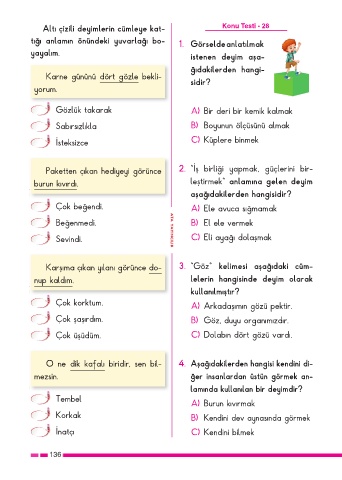 Altı çizili deyimlerin cümleye kat-
tığı anlamın önündeki yuvarlağı bo-
yayalım.
Karne gününü dört gözle bekli-
yorum.
Gözlük takarak
Sabırsızlıkla
İsteksizce
Paketten çıkan hediyeyi görünce
burun kıvırdı.
Çok beğendi.
Beğenmedi.
Sevindi.
Karşıma çıkan yılanı görünce do-
nup kaldım.
Çok korktum.
Çok şaşırdım.
Çok üşüdüm.
O ne dik kafalı biridir, sen bil-
mezsin.
Tembel
Korkak
İnatçı
136
ATA YAYINCILIK
Konu Testi - 28
1. Görselde anlatılmak
istenen deyim aşa-
ğıdakilerden hangi-
sidir?
A) Bir deri bir kemik kalmak
B) Boyunun ölçüsünü almak
C) Küplere binmek
2. "İş birliği yapmak, güçlerini bir-
leştirmek" anlamına gelen deyim
aşağıdakilerden hangisidir?
A) Ele avuca sığmamak
B) El ele vermek
C) Eli ayağı dolaşmak
3. "Göz" kelimesi aşağıdaki cüm-
lelerin hangisinde deyim olarak
kullanılmıştır?
A) Arkadaşımın gözü pektir.
B) Göz, duyu organımızdır.
C) Dolabın dört gözü vardı.
4. Aşağıdakilerden hangisi kendini di-
ğer insanlardan üstün görmek an-
lamında kullanılan bir deyimdir?
A) Burun kıvırmak
B) Kendini dev aynasında görmek
C) Kendini bilmek